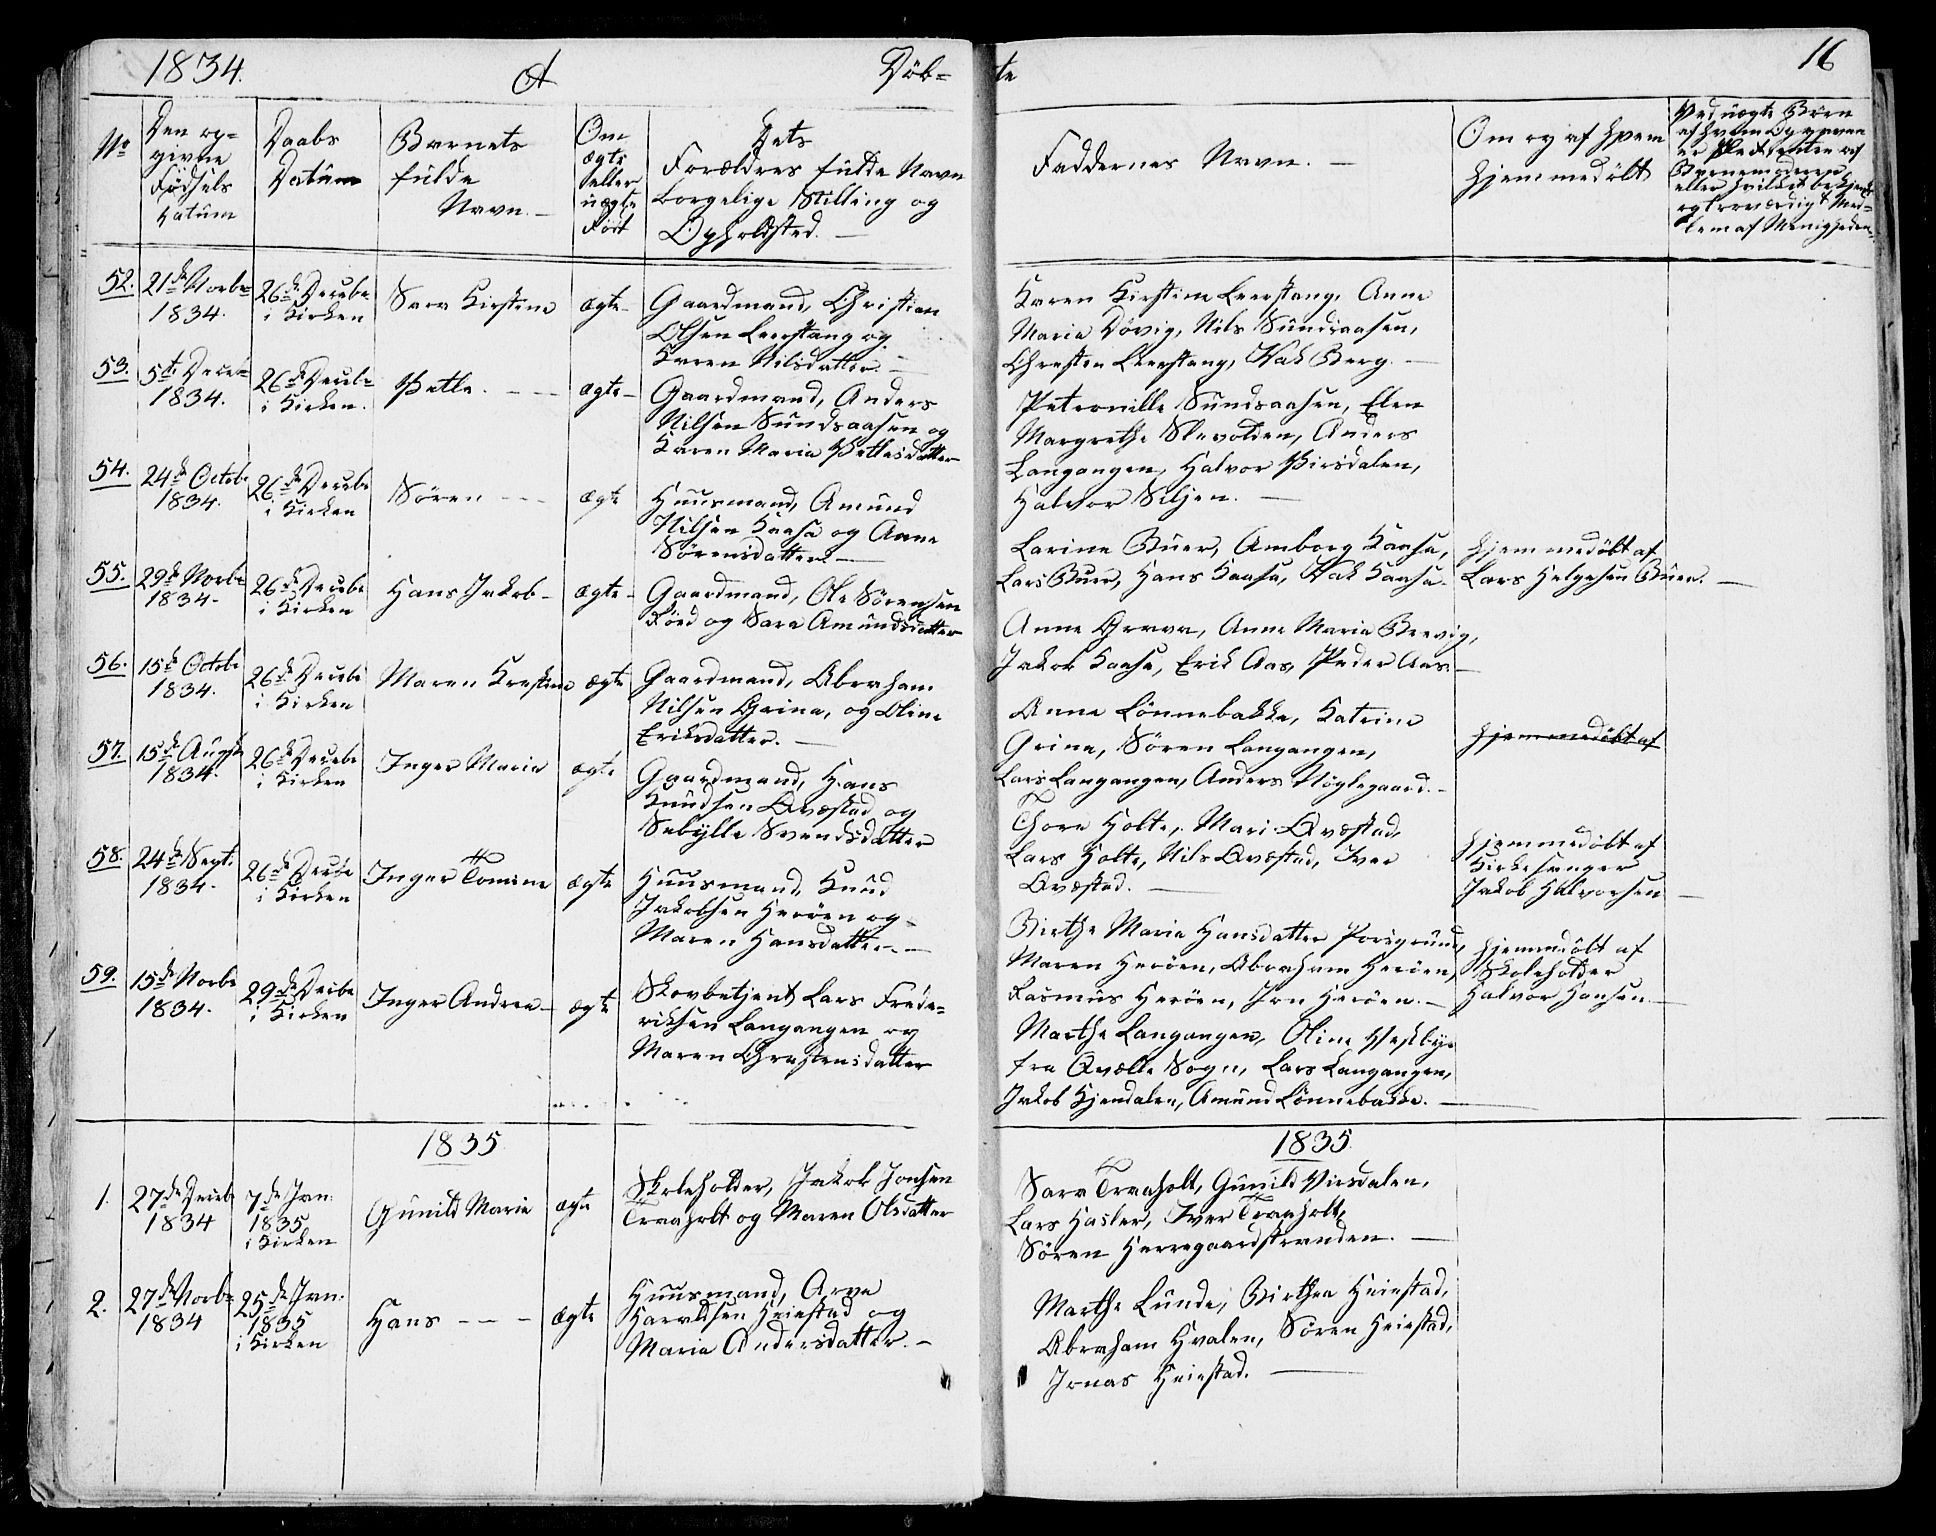 1834.
A
Døb-
te
16
No
Den op-
givne
Fødsels
Datum
Daabs
Datum
Barnets
fulde
Navn.
Om
ægte
eller
uægte
Født
Dets
Forældres fulde Navn
borgelige Stilling og
Opholdsted.
Faddernes Navn.
Om og af hvem
hjemmedøbt
Ved uægte Børn
52.
21de Novbr
1834.
26de Decebr
i Kirken
Sara Kirstine
ægte
Gaardmand, Christian
Olsen Leerstang og
Karen Nilsdatter.
Karen Kirstine Leerstang, Anne
Maria Døvig, Nils Sundsaasen,
Chresten Leerstang, Isak Berg.
53.
5te Decebr
1834.
26de Decebr
i Kirken.
Petle.
ægte
Gaardmand, Anders
Nilsen Sundsaasen og
Karen Maria Petlesdatter
Petronille Sundsaasen, Elen
Margrethe Slevolden, Anders
Langangen, Halvor Virsdalen,
Halvor Siljen.
54.
24de Octobr
1834.
26de Decebr
i Kirken
Søren
ægte
Huusmand, Amund
Nilsen Kaasa og Anne
Sørensdatter
Larine Buer, Amborg Kaasa,
Lars Buer, Hans Kaasa, Isak Kaasa.
hjemmedøbt af
Lars Helgesen Buer.
55.
29de Novbr
1834.
26de Decebr
i Kirken
Hans Jakob
ægte
Gaardmand, Ole Sørensen
Røed og Sara Amundsdatter
Anne Grava, Anne Maria Brevig,
Jakob Kaasa, Erik Aas, Peder Aas.
56.
15de Octobr
1834.
26de Decebr
i Kirken
Maren Kirstine
ægte
Gaardmand, Abraham
Nilsen Grina, og Oline
Eriksdatter.
Anne Lønnebakke, Katrine
Grina, Søren Langangen,
Lars Langangen, Anders Nøglegaard.
hjemmedøbt af
57.
15de August
1834.
26de Decebr
i Kirken
Inger Maria
ægte
Gaardmand, Hans
Knudsen Ovestad og
Sebylle Svendsdatter
Thore Holte, Mari Ovestad,
Lars Holte, Nils Ovestad, Iver
Ovestad.
hjemmedøbt af
Kirkesanger
Jakob Halvorsen
58.
24de Sept.
1834.
26de Decbr
i Kirken
Inger Tomine
ægte
Huusmand, Knud
Jakobsen Herøen og
Maren Hansdatter.
Birthe Maria Hansdatter Porsgrund,
Maren Herøen, Abraham Herøen,
Rasmus Herøen, Jon Herøen.
hjemmedøbt af
Skoleholder
Halvor Hansen.
59.
15de Novbr
1834.
29de Decbr
i Kirken
Inger Andrea
ægte
Skovbetjent Lars Frede-
riksen Langangen og
Maren Chrestensdatter
Marthe Langangen, Oline Vestbye
fra Qvelle Sogn, Lars Langangen,
Jakob Kjendalen, Amund Lønnebakke.
1835
1835
1.
27de Decebr
1834
7de Jan.
1835
i Kirken
Gunild Maria
ægte
Skoleholder, Jakob Jonsen
Traaholt og Maren Olsdatter
Sara Traaholt, Gunild Virsdalen,
Lars Hasler, Iver Traaholt,
Søren Herregaardstranden.
2.
27de Novbr
1834
25de Jan.
1835
i Kirken
Hans
ægte
Huusmand, Arve
Haraldsen Heiestad og
Maria Andersdatter.
Marthe Lunde, Birthea Heiestad,
Abraham Hvalen, Søren Heiestad,
Jonas Heiestad.